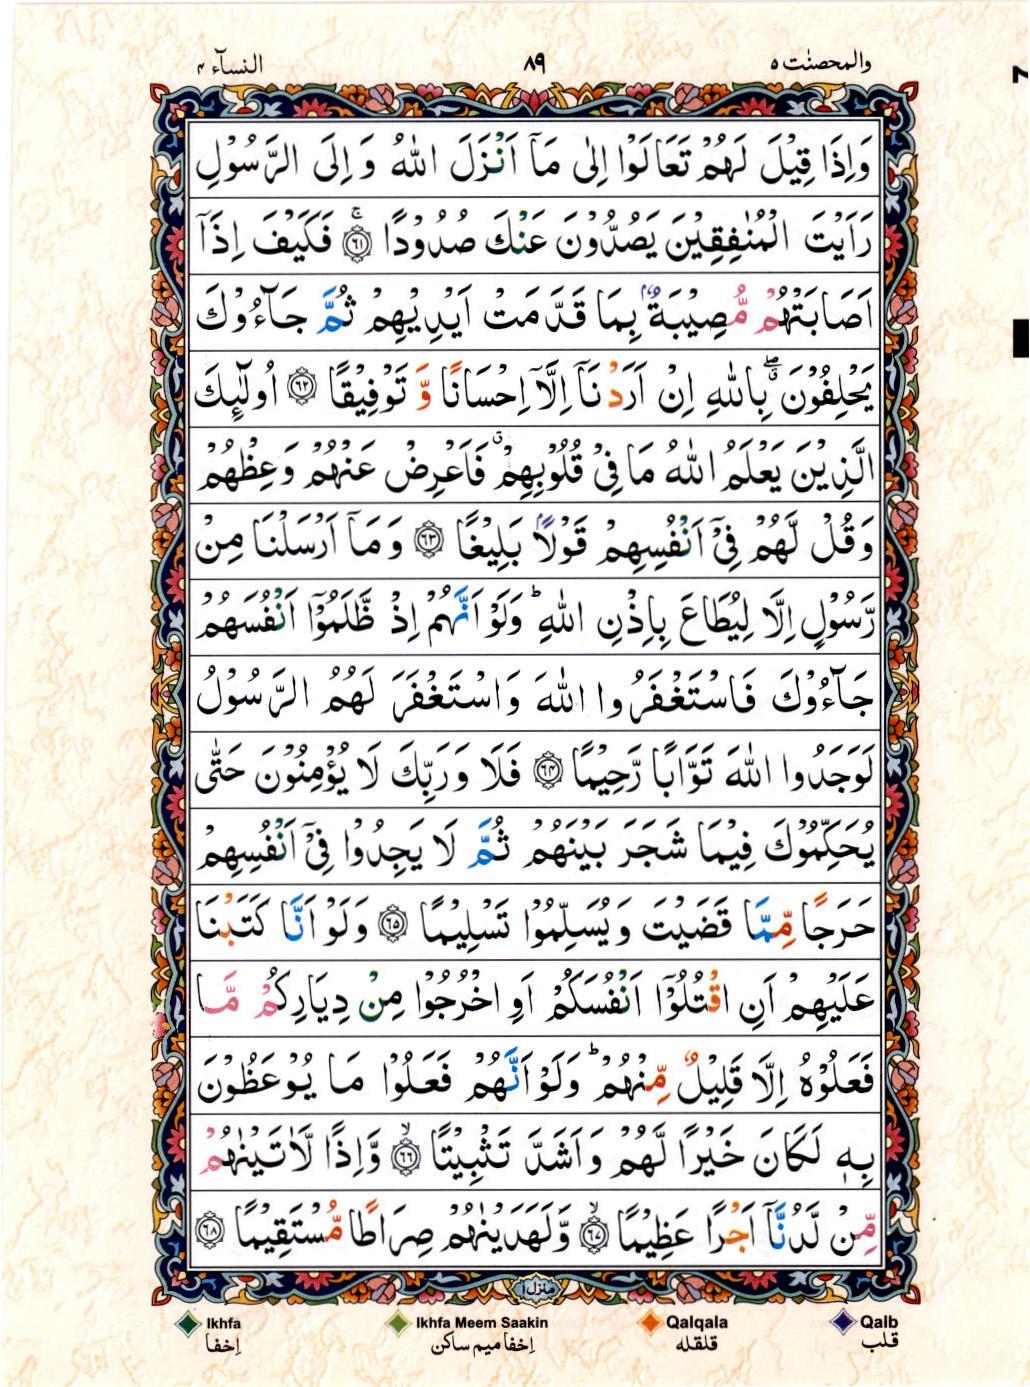 النسآء ۴ ۸۹ والمحصنٰت ۵
وَاِذَا قِيْلَ لَهُمْ تَعَالَوْا اِلٰى مَآ اَنْزَلَ اللّٰهُ وَ اِلَى الرَّسُوْلِ
رَاَيْتَ الْمُنٰفِقِيْنَ يَصُدُّوْنَ عَنْكَ صُدُوْدًا ۚ‏﴿۶۱﴾ فَكَيْفَ اِذَآ
اَصَابَتْهُمْ مُّصِيْبَةٌۢ بِمَا قَدَّمَتْ اَيْدِيْهِمْ ثُمَّ جَآءُوْكَ
يَحْلِفُوْنَ ۖۗ بِاللّٰهِ اِنْ اَرَدْنَآ اِلَّاۤ اِحْسَانًا وَّ تَوْفِيْقًا ﴿۶۲﴾ اُولٰٓئِكَ
الَّذِيْنَ يَعْلَمُ اللّٰهُ مَا فِىْ قُلُوْبِهِمْ ۗ فَاَعْرِضْ عَنْهُمْ وَعِظْهُمْ
وَقُلْ لَّهُمْ فِىْۤ اَنْفُسِهِمْ قَوْلًاۢ بَلِيْغًا ﴿۶۳﴾ وَمَآ اَرْسَلْنَا مِنْ
رَّسُوْلٍ اِلَّا لِيُطَاعَ بِاِذْنِ اللّٰهِ ؕ وَلَوْ اَنَّهُمْ اِذْ ظَّلَمُوْۤا اَنْفُسَهُمْ
جَآءُوْكَ فَاسْتَغْفَرُوا اللّٰهَ وَاسْتَغْفَرَ لَهُمُ الرَّسُوْلُ
لَوَجَدُوا اللّٰهَ تَوَّابًا رَّحِيْمًا ﴿۶۴﴾ فَلَا وَرَبِّكَ لَا يُؤْمِنُوْنَ حَتّٰى
يُحَكِّمُوْكَ فِيْمَا شَجَرَ بَيْنَهُمْ ثُمَّ لَا يَجِدُوْا فِىْۤ اَنْفُسِهِمْ
حَرَجًا مِّمَّا قَضَيْتَ وَيُسَلِّمُوْا تَسْلِيْمًا ﴿۶۵﴾ وَلَوْ اَنَّا كَتَبْنَا
عَلَيْهِمْ اَنِ اقْتُلُوْۤا اَنْفُسَكُمْ اَوِ اخْرُجُوْا مِنْ دِيَارِكُمْ مَّا
فَعَلُوْهُ اِلَّا قَلِيْلٌ مِّنْهُمْ ؕ وَلَوْ اَنَّهُمْ فَعَلُوْا مَا يُوْعَظُوْنَ
بِهٖ لَكَانَ خَيْرًا لَّهُمْ وَاَشَدَّ تَثْبِيْتًا ۙ‏﴿۶۶﴾ وَّاِذًا لَّاٰتَيْنٰهُمْ
مِّنْ لَّدُنَّآ اَجْرًا عَظِيْمًا ۙ‏﴿۶۷﴾ وَّلَهَدَيْنٰهُمْ صِرَاطًا مُّسْتَقِيْمًا ﴿۶۸﴾
منزل ۱
Ikhfa Ikhfa Meem Saakin Qalqala Qalb
إخفا إخفا ميم ساكن قلقله قلب